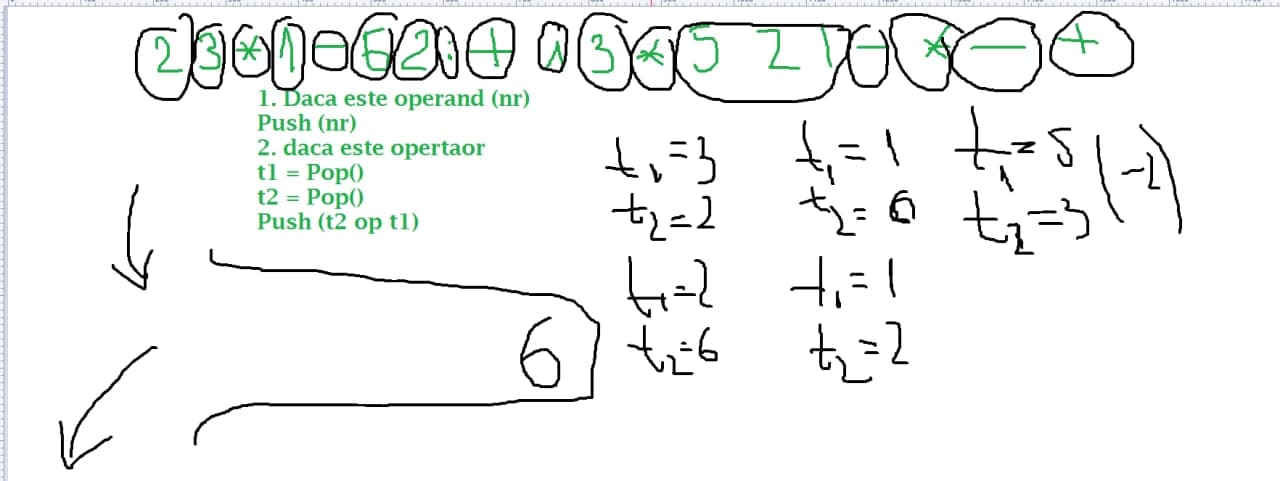 2 3 * 1 - 6 2 : + 1 3 * 5 2 1 - * - +
1. Daca este operand (nr)
Push (nr)
2. daca este opertaor
t1 = Pop()
t2 = Pop()
Push (t2 op t1)
t1 = 3
t2 = 2
t1 = 2
t2 = 6
t1 = 1
t2 = 6
t1 = 1
t2 = 2
t1 = 5
t2 = 3
(-2)
6